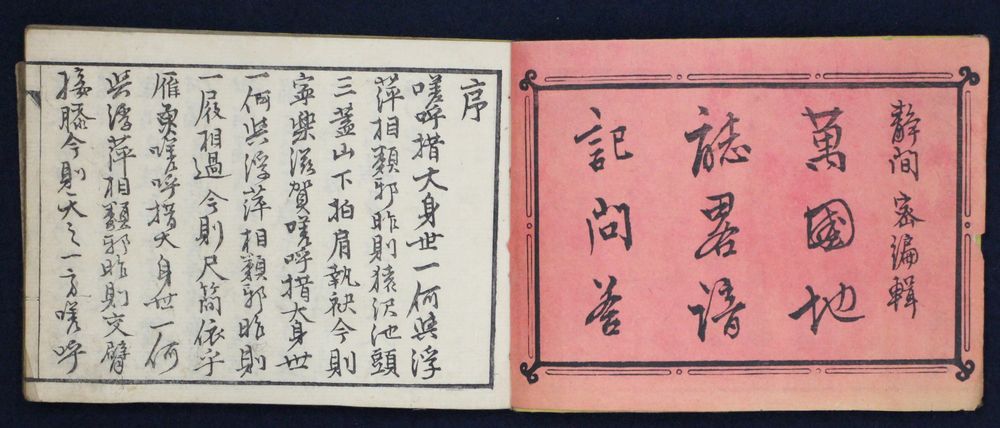 静間密編輯
萬國地
誌畧諳
記問答
序
嗟呼措大身世一何與浮
萍相類邪昨則猿沢池頭
三葢山下拍肩執袂今則
寧樂滋賀嗟呼措大身世
一何與浮萍相類邪昨則
一屐相過今則尺簡依乎
雁奧嗟呼措大身世一何
與浮萍相類邪昨則交臂
接膝今則天之一方嗟呼